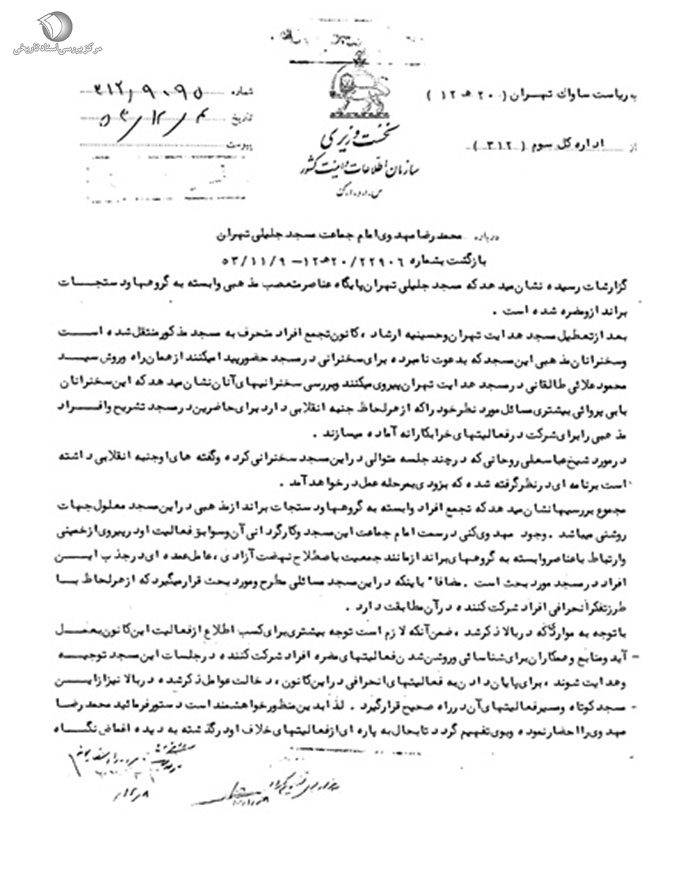 مرکز بررسی اسناد تاریخی
به ریاست ساواک تهران ( ۲۰ هـ ۱۲ )
از اداره کل سوم ( ۳۱۲ )
نخست وزیری
سازمان اطلاعات و امنیت کشور
س. ا. و. ا. ک
شماره ۳۱۲/۹۰۹۵
تاریخ ۵۳/۱۲/۴
پیوست
درباره محمدرضا مهدوی امام جماعت مسجد جلیلی تهران
بازگشت بشماره ۲۲۹۰۶/۲۰هـ۱۲ - ۵۳/۱۱/۹
گزارشات رسیده نشان میدهد که مسجد جلیلی تهران پایگاه عناصر متعصب مذهبی وابسته به گروهها و دستجات
برانداز و مضره شده است .
بعد از تعطیل مسجد هدایت تهران و حسینیه ارشاد ، کانون تجمع افراد متحرف به مسجد مذکور منتقل شده است
و سخنرانان مذهبی این مسجد که بدعوت نامبرده برای سخنرانی در مسجد حضور پیدا میکنند از همان راه و روش سید
محمود علائی طالقانی در مسجد هدایت تهران پیروی میکنند و بررسی سخنرانیهای آنان نشان میدهد که این سخنرانان
با بی پروائی بیشتری مسائل مورد نظر خود را که از هر لحاظ جنبه انقلابی دارد برای حاضرین در مسجد تشریح و افراد
مذهبی را برای شرکت در فعالیتهای خرابکارانه آماده میسازند .
در مورد شیخ عباسعلی روحانی که در چند جلسه متوالی در این مسجد سخنرانی کرده و گفته های او جنبه انقلابی داشته
است برنامه ای در نظر گرفته شده که بزودی بمرحله عمل در خواهد آمد .
مجموع بررسیها نشان میدهد که تجمع افراد وابسته به گروهها و دستجات برانداز مذهبی در این مسجد معلول جهات
روشنی میباشد . وجود مهدوی کنی در سمت امام جماعت این مسجد و کارگردانی آن و سوابق فعالیت او در پیروی از خمینی
و ارتباط با عناصر وابسته به گروههای برانداز مانند جمعیت باصطلاح نهضت آزادی ، عامل عمده ای در جذب این
افراد در مسجد مورد بحث است . مضافا" باینکه در این مسجد مسائلی مطرح و مورد بحث قرار میگیرد که از هر لحاظ با
طرز تفکر انحرافی افراد شرکت کننده در آن مطابقت دارد .
با توجه به مواردیکه در بالا ذکر شد ، ضمن آنکه لازم است توجه بیشتری برای کسب اطلاع از فعالیت این کانون بعمل
آید و منابع و همکاران برای شناسائی و روشن شدن فعالیتهای مضره افراد شرکت کننده در جلسات این مسجد توجیه
و هدایت شوند ، برای پایان دادن به فعالیتهای انحرافی در این کانون ، دخالت عوامل ذکر شده در بالا نیز از این
مسجد کوتاه و مسیر فعالیتهای آن در راه صحیح قرار گیرد . لذا بدین منظور خواهشمند است دستور فرمائید محمدرضا
مهدوی را احضار نموده و بوی تفهیم گردد تا بحال به پاره ای از فعالیتهای خلاف او در گذشته به دیده اغماض نگاه